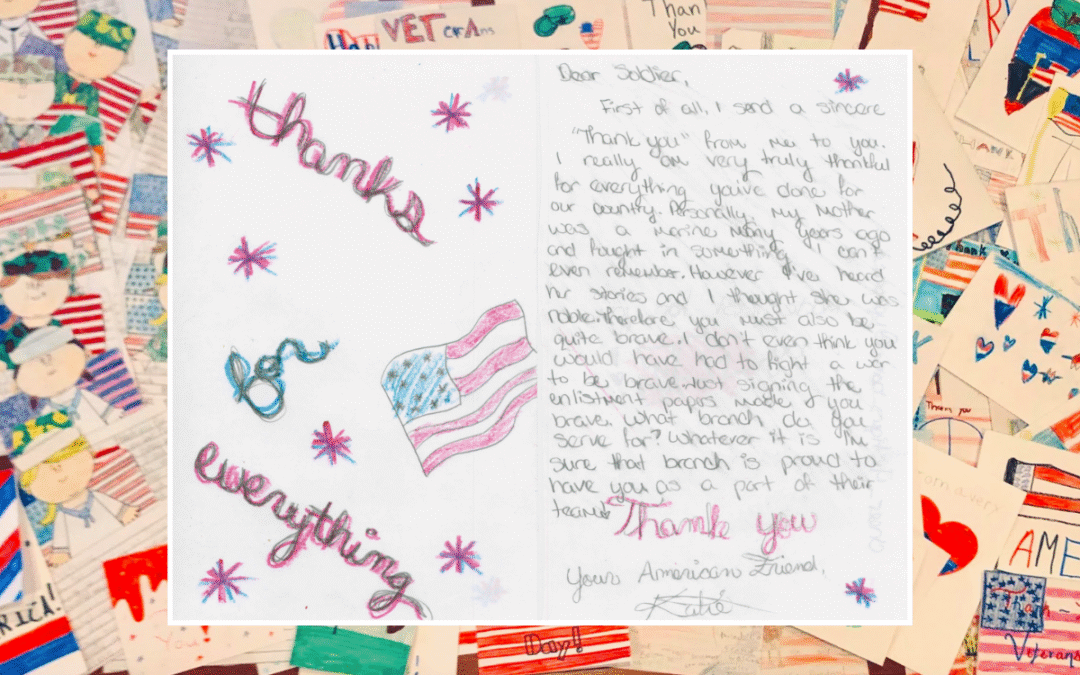 thanks
for
everything
Dear Soldier,
First of all, I send a sincere
"Thank you" from me to you.
I really am very truly thankful
for everything you've done for
our country. Personally, my Mother
was a marine many years ago
and fought in something I can't
even remember. However I've heard
her stories and I thought she was
noble. Therefore you must also be
quite brave. I don't even think you
would have had to fight a war
to be brave. Just signing the
enlistment papers made you
brave. What branch do you
serve for? Whatever it is I'm
sure that branch is proud to
have you as a part of their
team!
Thank you
Your American Friend,
Katie
VETerAns
Thank
You
Thank you
Day!
AME
Veterans